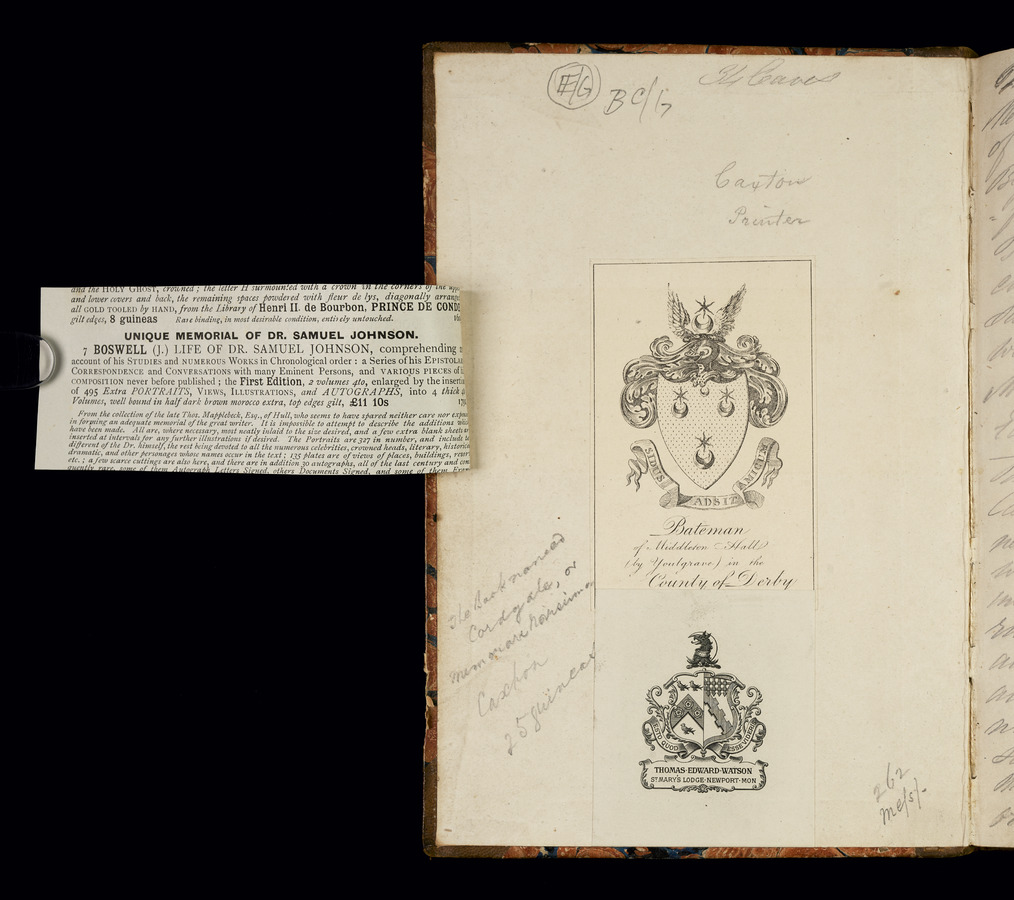 E/G
B C/G
Caxton
Printer
and the HOLY GHOST, crowned; the letter H surmounted with a crown in the corners of the
and lower covers and back, the remaining spaces powdered with fleur de lys, diagonally
all GOLD TOOLED by HAND, from the Library of Henri II. de Bourbon, PRINCE DE
gilt edges, 8 guineas Rare binding, in most desirable condition, entirely untouched.
UNIQUE MEMORIAL OF DR. SAMUEL JOHNSON.
7 BOSWELL (J.) LIFE OF DR. SAMUEL JOHNSON, comprehending
account of his STUDIES and NUMEROUS WORKS in Chronological order: a Series of his
CORRESPONDENCE and CONVERSATIONS with many Eminent Persons, and VARIOUS PIECES of
COMPOSITION never before published; the First Edition, 2 volumes 4to, enlarged by the
of 495 Extra PORTRAITS, VIEWS, ILLUSTRATIONS, and AUTOGRAPHS, into 4 thick
Volumes, well bound in half dark brown morocco extra, top edges gilt, £11 10s
From the collection of the late Thos. Mapplebeck, Esq., of Hull, who seems to have spared neither care nor
in forming an adequate memorial of the great writer. It is impossible to attempt to describe the additions
have been made. All are, where necessary, most neatly inlaid to the size desired, and a few extra blank sheets
inserted at intervals for any further illustrations if desired. The Portraits are 327 in number, and include
different of the Dr. himself, the rest being devoted to all the numerous celebrities, crowned heads, literary,
dramatic, and other personages whose names occur in the text; 135 plates are of views of places, buildings,
etc.; a few scarce cuttings are also here, and there are in addition 30 autographs, all of the last century and
quently rare, some of them Autograph Letters Signed, others Documents Signed, and some of them
SIDUS ADSIT AMICUM
Bateman
of Middleton Hall
(by Youlgrave) in the
County of Derby
The Book named
Cordyale, or
Memorare novissima
Caxton
25 guineas
ESTO QUOD ESSE VIDERIS
THOMAS·EDWARD·WATSON
ST. MARY'S LODGE·NEWPORT·MON
262
me/s/-